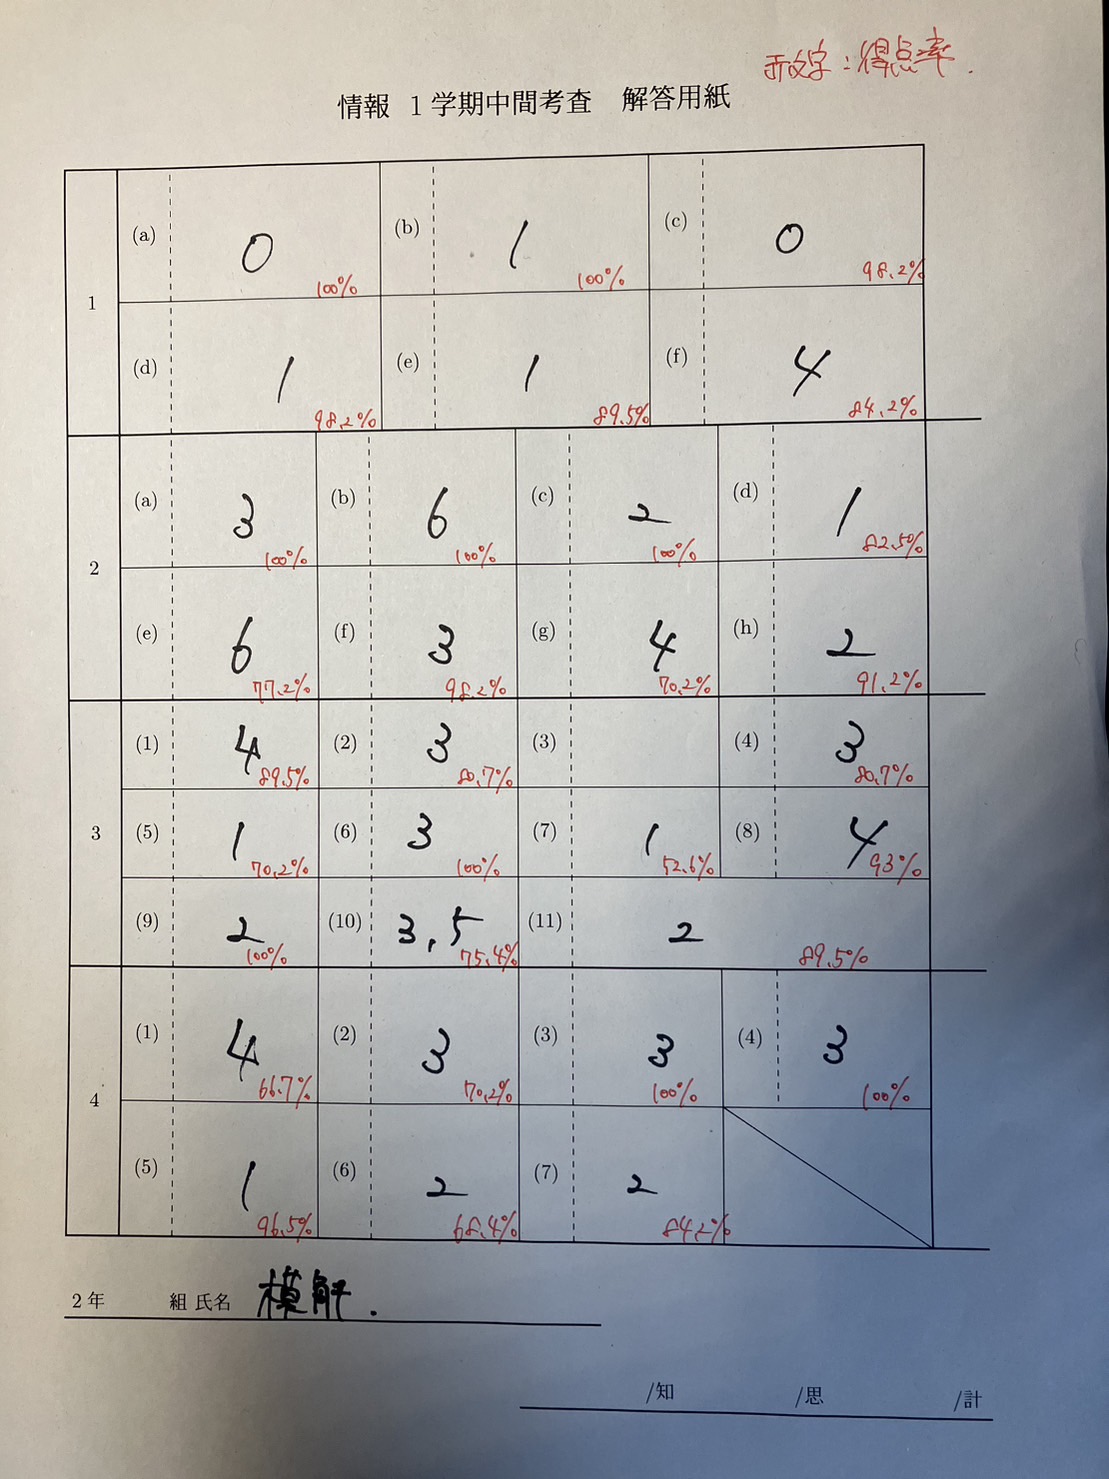 赤文字：得点率.
情報 1学期中間考査 解答用紙
1
(a) 0 100%
(b) 1 100%
(c) 0 98.2%
(d) 1 98.2%
(e) 1 89.5%
(f) 4 84.2%
2
(a) 3 100%
(b) 6 100%
(c) 2 100%
(d) 1 82.5%
(e) 6 77.2%
(f) 3 98.2%
(g) 4 70.2%
(h) 2 91.2%
3
(1) 4 89.5%
(2) 3 80.7%
(3)
(4) 3 80.7%
(5) 1 70.2%
(6) 3 100%
(7) 1 52.6%
(8) 4 93%
(9) 2 100%
(10) 3,5 75.4%
(11) 2 89.5%
4
(1) 4 66.7%
(2) 3 70.2%
(3) 3 100%
(4) 3 100%
(5) 1 96.5%
(6) 2 68.4%
(7) 2 84.2%
2年 組 氏名 模解.
/知 /思 /計